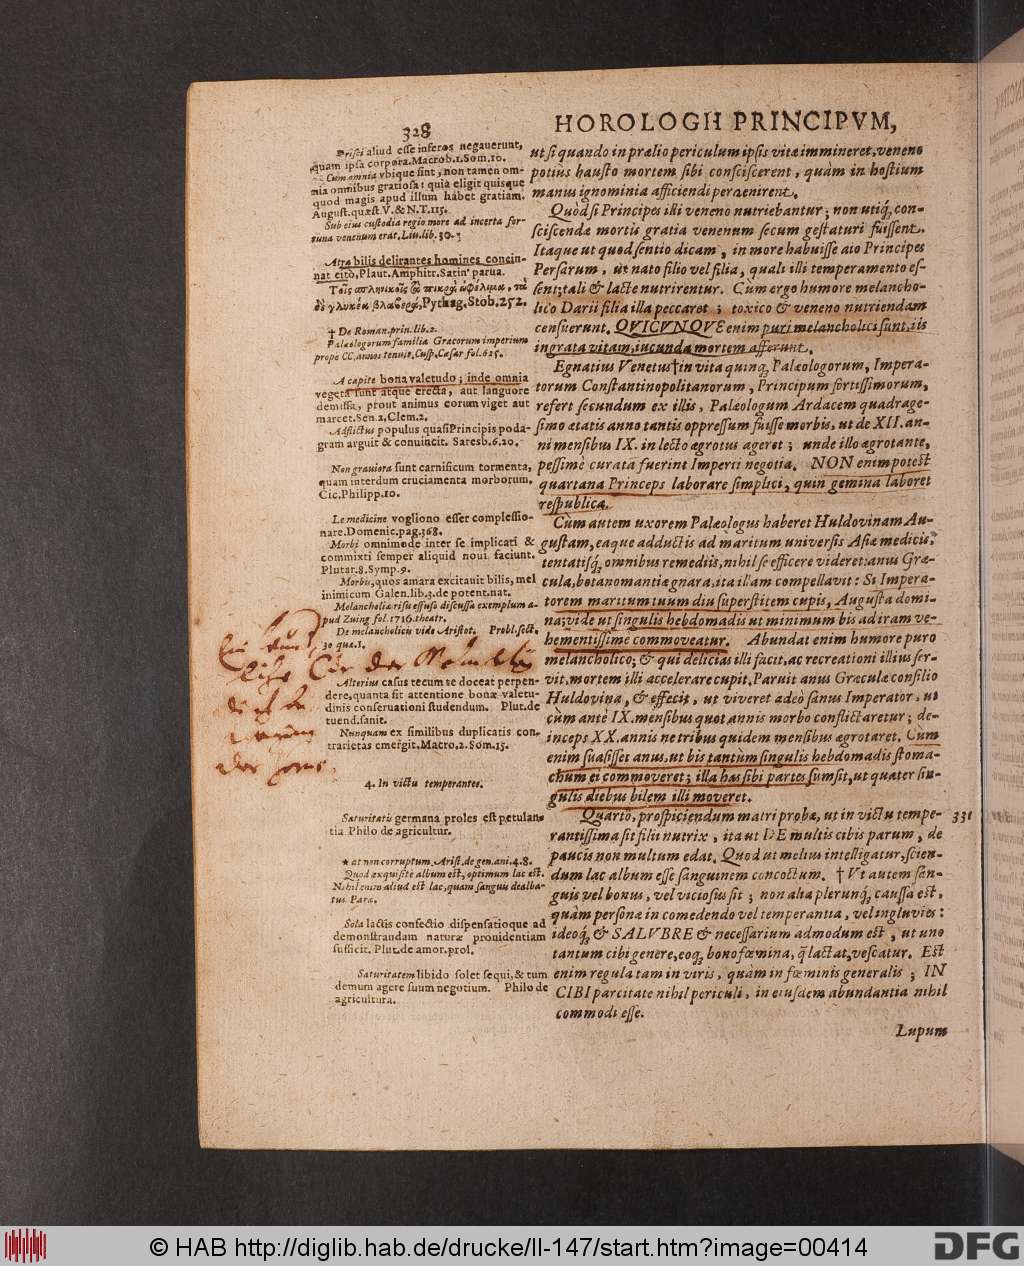 328
HOROLOGII PRINCIPVM,
Prisci aliud esse inferos negauerunt,
quam ipsa corpora. Macrob. 1. Som. 10.
Cum omnia vbique sint, non tamen om-
nia omnibus gratiosa: quia eligit quisque
quod magis apud illum habet gratiam.
August. quæst. V. & N. T. 115.
Sub eius custodia regio more ad incerta for-
tuna venenum erat, Liu. lib. 30.
Atra bilis delirantes homines concin-
nat cito, Plaut. Amphitr. Satin' parua.
Pythag. Stob. 252.
† De Roman. prin. lib. 2.
Palæologorum familia Græcorum imperium
prope CC. annos tenuit. Cusp. Cæsar fol. 615.
A capite bona valetudo; inde omnia
vegeta sunt atque erecta, aut languore
demissa, prout animus eorum viget aut
marcet. Sen. 2. Clem. 2.
Adflictus populus quasi Principis poda-
gram arguit & conuincit. Saresb. 6. 20.
Non grauiora sunt carnificum tormenta,
quam interdum cruciamenta morborum.
Cic. Philipp. 10.
Le medicine vogliono esser complessio-
nare. Domenic. pag. 368.
Morbi omnimode inter se implicati &
commixti semper aliquid noui faciunt.
Plutar. 8. Symp. 9.
Morbis, quos amara excitauit bilis, mel
inimicum Galen. lib. 3. de potent. nat.
Melancholia risu effuso discussa exemplum a-
pud Zuing. fol. 1716. theatr.
De melancholicis vide Aristot. Probl. sect.
30 quæ. 1.
Alterius casus tecum te doceat perpen-
dere, quanta sit attentione bonæ valetu-
dinis conseruationi studendum. Plut. de
tuend. sanit.
Nunquam ex similibus duplicatis con-
trarietas emergit. Macro. 2. Som. 15.
4. In victu temperantes.
Saturitatis germana proles est petulan-
tia Philo de agricultur.
* at non corruptum. Arist. de gen. ani. 4. 8.
Quod exquisite album est, optimum lac est.
Nihil enim aliud est lac, quam sanguis dealba-
tus Paræ.
Sola lactis confectio dispensatioque ad
demonstrandam naturæ prouidentiam
sufficit. Plut. de amor. prol.
Saturitatem libido solet sequi, & tum
demum agere suum negotium. Philo de
agricultura.
ut si quando in prælio periculum ipsis vitæ immineret, veneno
potiùs hausto mortem sibi consciscerent, quàm in hostium
manus ignominia afficiendi peruenirent.
Quòd si Principes illi veneno nutriebantur; non utiq́, con-
sciscendæ mortis gratia venenum secum gestaturi fuissent.
Itaque ut quod sentio dicam, in more habuisse aio Principes
Persarum, ut nato filio vel filia, quali illi temperamento es-
sent; tali & lacte nutrirentur. Cum ergo humore melancho-
lico Darii filia illa peccaret; toxico & veneno nutriendam
censuerunt. QVICVNQVE enim puri melancholici sunt, iis
ingrata vitam, iucunda mortem afferunt.
Egnatius Venetus † in vita quinq́ Palæologorum, Impera-
torum Constantinopolitanorum, Principum fortissimorum,
refert secundum ex illis, Palæologum Ardacem quadrage-
simo ætatis anno tantis oppressum fuisse morbis, ut de XII. an-
ni mensibus IX. in lecto ægrotus ageret; unde illo ægrotante,
pessimè curata fuerint Imperii negotia. NON enim potest
quartana Princeps laborare simplici, quin gemina laboret
respublica.
Cùm autem uxorem Palæologus haberet Huldovinam Au-
gustam, eaque adductis ad maritum universis Asiæ medicis,
tentatisq́, omnibus remediis, nihil se efficere videret: anus Græ-
cula, botanomantiæ gnara, ita illam compellavit: Si Impera-
torem maritum tuum diu superstitem cupis, Augusta domi-
na; vide ut singulis hebdomadis ut minimum bis ad iram ve-
hementissime commoveatur. Abundat enim humore puro
melancholico; & qui delicias illi facit, ac recreationi illius ser-
vit, mortem illi accelerare cupit. Paruit anus Græculæ consilio
Huldovina, & effecit, ut viveret adeò sanus Imperator, ut
cùm antè IX. mensibus quot annis morbo conflictaretur; de-
inceps XX. annis ne tribus quidem mensibus ægrotaret. Cùm
enim suasisset anus, ut bis tantùm singulis hebdomadis stoma-
chum ei commoveret; illa has sibi partes sumsit, ut quater sin-
gulis diebus bilem illi moveret.
Quartò, prospiciendum matri probæ, ut in victu tempe-
331
rantissima sit filii nutrix, ita ut DE multis cibis parum, de
paucis non multum edat. Quod ut melius intelligatur, scien-
dum lac album esse sanguinem concoctum. † Vt autem san-
guis vel bonus, vel viciosus sit; non alia plerunq́, caussa est,
quàm personæ in comedendo vel temperantia, vel ingluvies:
ideoq́, & SALVBRE & necessarium admodum est, ut uno
tantum cibi genere, eoq́, bono fœmina, q̃ lactat, vescatur. Est
enim regula tam in viris, quàm in fœminis generalis; IN
CIBI parcitate nihil periculi, in eiusdem abundantia nihil
commodi esse.
Lupum
© HAB http://diglib.hab.de/drucke/ll-147/start.htm?image=00414
DFG